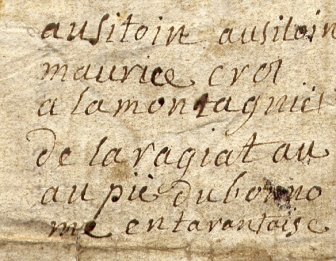 ausitoin ausitoin
maurice crol
a la montagniei
de la ragiat au
au pie du bonno
me en tarantaise